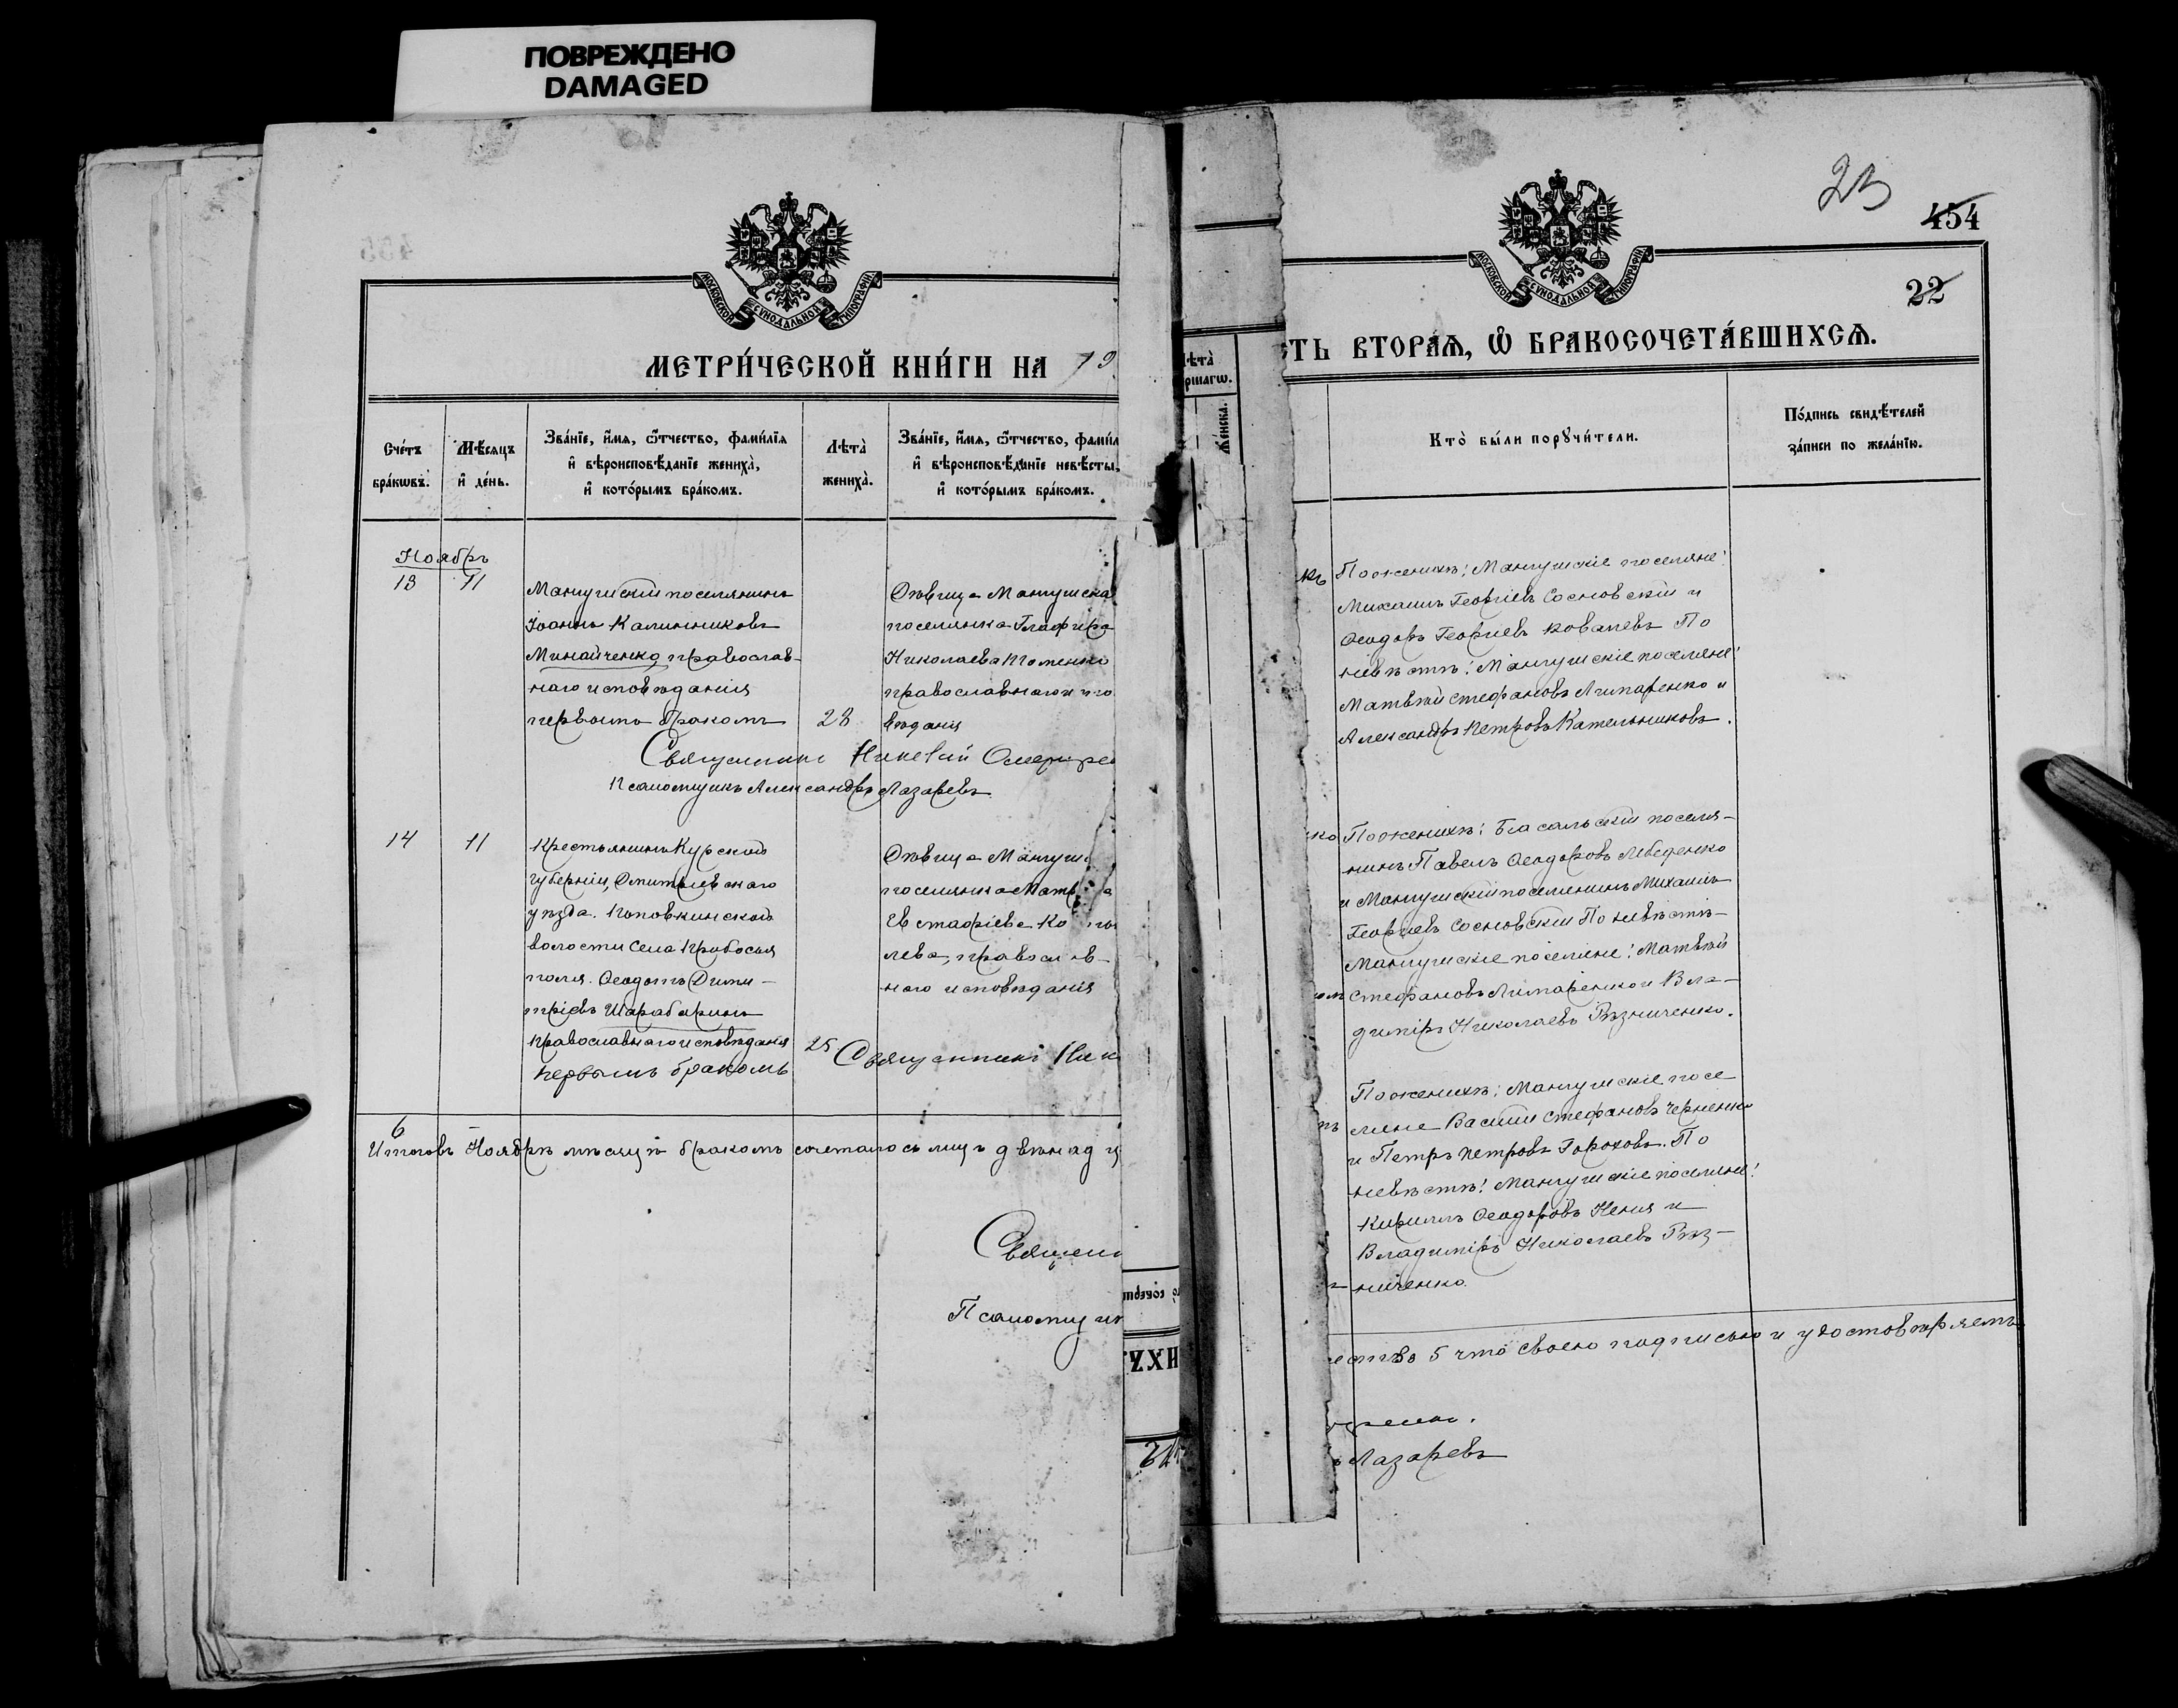 ПОВРЕЖДЕНО
DAMAGED
МОСКОВСКОЙ СѴНОДАЛЬНОЙ ТИПОГРАФІИ
МЕТРИ́ЧЕСКОЙ КНИ́ГИ НА 19
Сче́тъ бра́кωвъ.
Мѣ́сяцъ и҆ де́нь.
Зва́нїе, и҆́мѧ, ѻ҆́тчество, фами́лїѧ
и҆ вѣроисповѣ́данїе жениха̀,
и҆ кото́рымъ бра́комъ.
Лѣта̀ жениха̀.
Зва́нїе, и҆́мѧ, ѻ҆́тчество, фами́л
и҆ вѣроисповѣ́данїе невѣ́сты,
и҆ кото́рымъ бра́комъ.
Ноябрь
13 11
Мангушскій поселянинъ
Іоаннъ Калинниковъ
Минайченко, православ-
наго исповѣданія
первымъ бракомъ
28
Дѣвица Мангушска
поселянка Глафира
Николаева
православнаго испо
вѣданія
Священникъ
Псаломщикъ Александръ Лазаревъ.
14 11
Крестьянинъ Курской
губерніи, Дмитріевскаго
уѣзда. Поповкинской
волости села
поля. Ѳеодотъ Дими-
тріевъ Шарабаринъ
православнаго исповѣданія
первымъ бракомъ
25
Дѣвица Мангуш
поселянка Матр а
Евстафіева Ко
лева, православ-
наго исповѣданія
Священникъ Ник
6
Итого въ Ноябрѣ мѣсяцѣ бракомъ сочеталось лицъ двѣнадц
Священ
Псаломщик
ИХЪ
Лѣта̀
Же́нска.
23
454
22
МОСКОВСКОЙ СѴНОДАЛЬНОЙ ТИПОГРАФІИ
СТЬ ВТОРА́Ѧ, Ѽ БРАКОСОЧЕТА́ВШИХСѦ.
Кто̀ бы́ли порꙋчи́тели.
По́дпись свидѣ́телей
за́писи по жела́нїю.
По женихѣ: Мангушскіе поселяне:
Михаилъ Георгіевъ Сосновскій и
Ѳеодоръ Георгіевъ Ковалевъ По
невѣстѣ: Мангушскіе поселяне:
Матвѣй Стефановъ Лимаренко и
Александръ Петровъ Кательниковъ.
По женихѣ: Біасальскій поселя-
нинъ Павелъ Ѳеодоровъ Лебеденко
и Мангушскій поселянинъ Михаилъ
Георгіевъ Сосновскій По невѣстѣ-
Мангушскіе поселяне: Матвѣй
Стефановъ Лимаренко и Вла-
диміръ Николаевъ Рѣзниченко.
По женихѣ: Мангушскіе посе
ляне Василій Стефановъ Черненко
и Петръ Петровъ Гороховъ. По
невѣстѣ: Мангушскіе поселяне:
Кириллъ Ѳеодоровъ Неня и
Владиміръ Николаевъ Рѣз-
ниченко.
5 что своею подписью и удостовѣряемъ
Лазаревъ